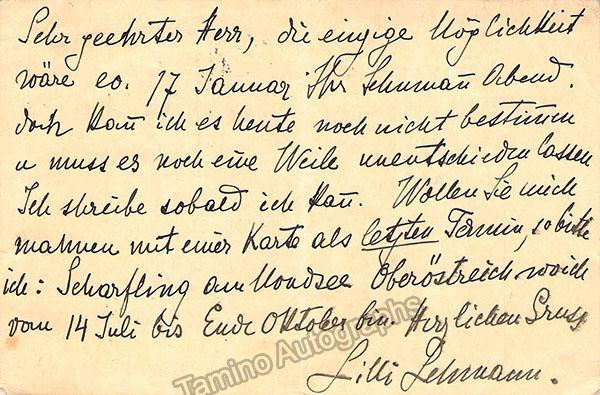 Sehr geehrter Herr, die einzige Möglichkeit
wäre eo. 17 Januar Ihr Schumañ Abend.
doch Kañ ich es heute noch nicht bestim̄en
u muss es noch eine Weile unentschieden lassen
Ich shreibe sobald ich Kañ. Wollen Sie mich
mahnen mit einer Karte als letzten Termin, so bitte
ich: Scharfling am Mondsee Oberöstreich wo ich
vom 14 Juli bis Ende Oktober bin. Herzlichen Gruss
Lilli Lehmann.
Tamino Autographs